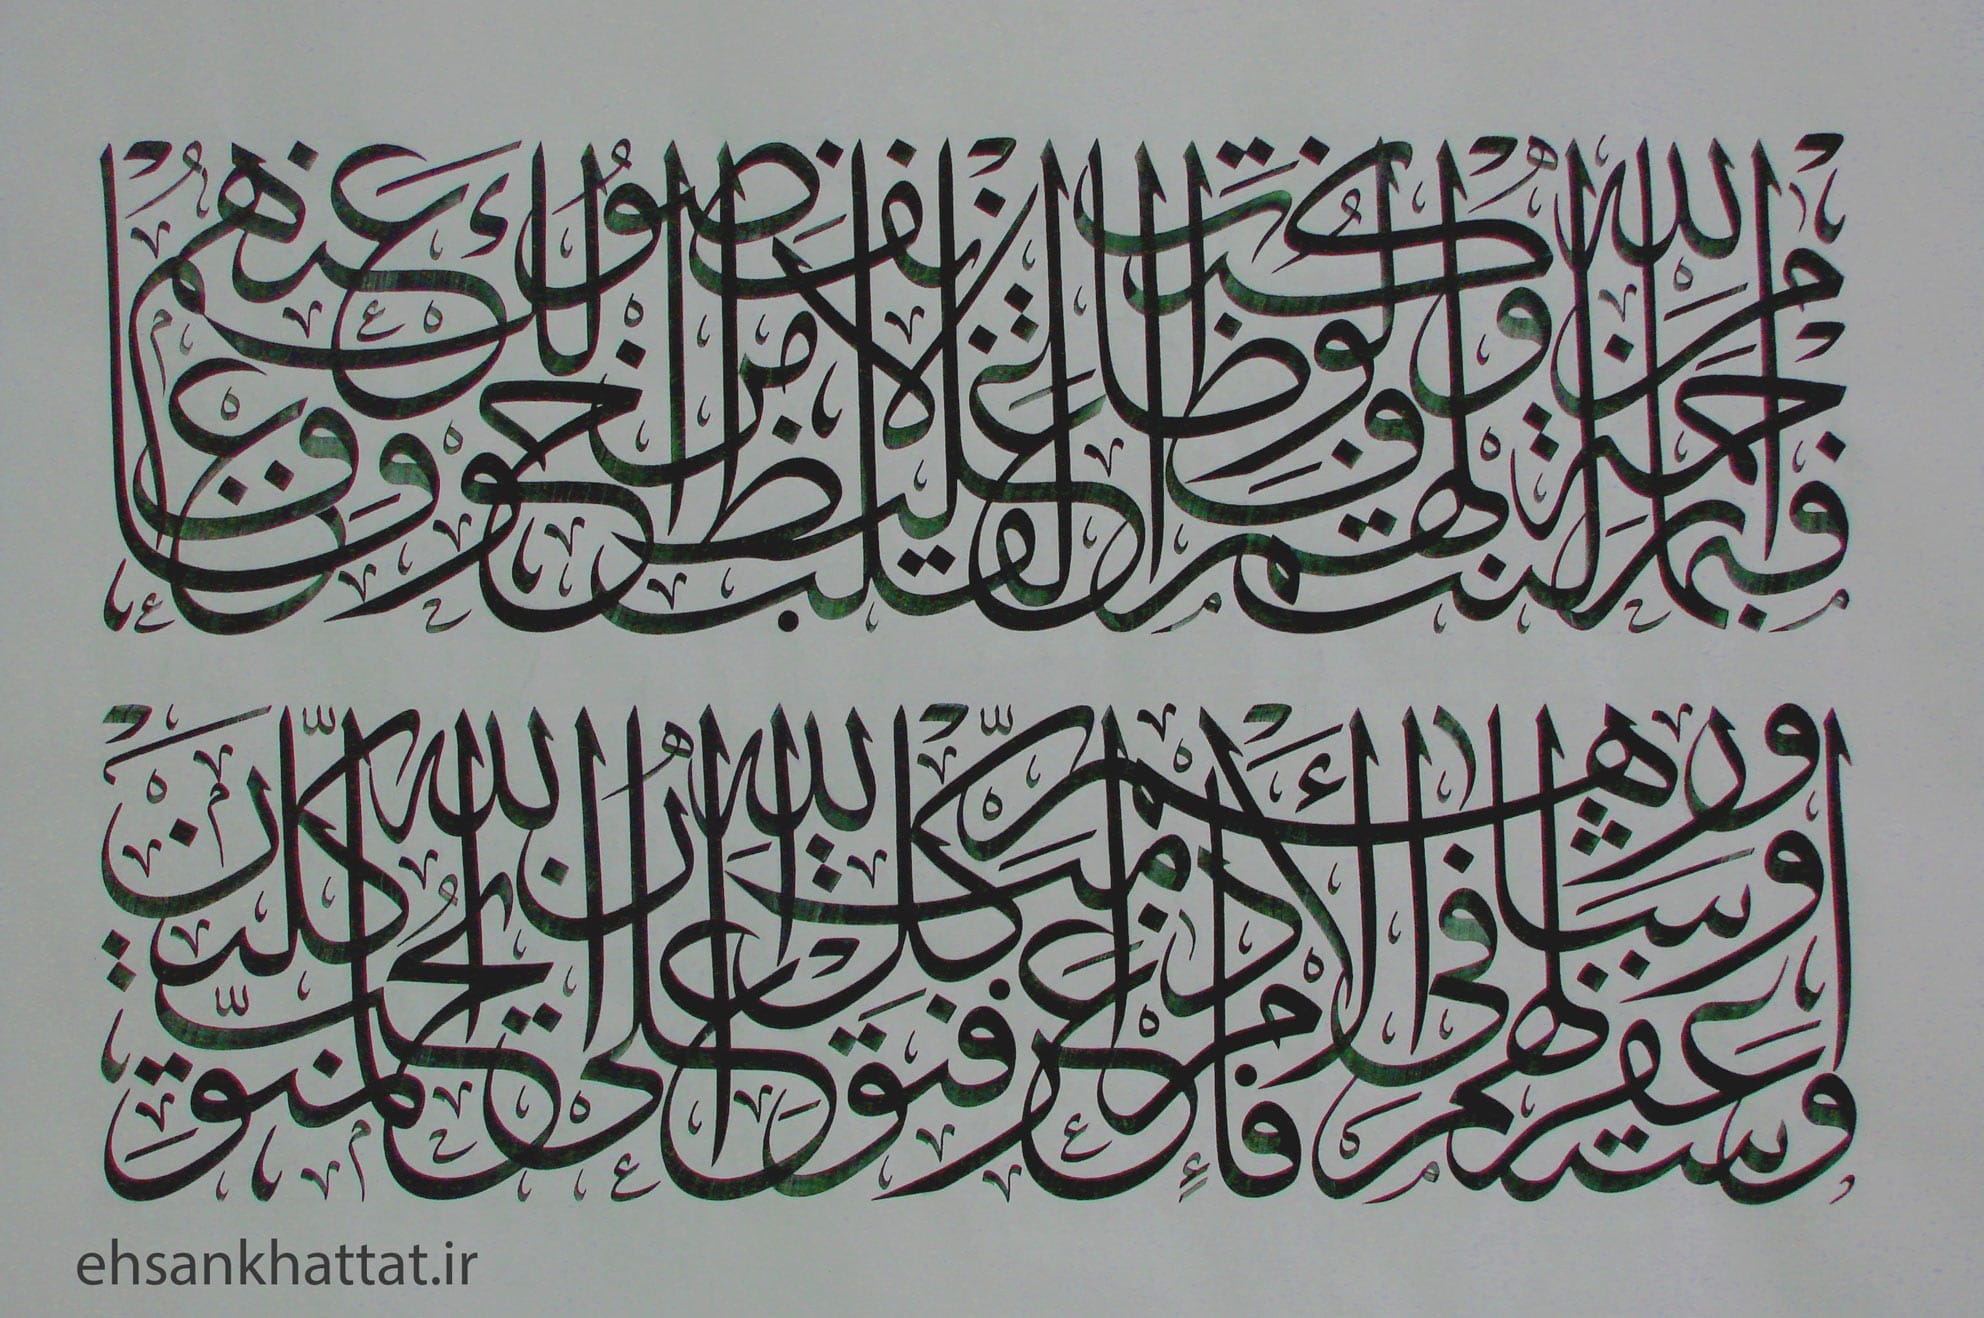 فبما رحمة من الله لنت لهم ولو كنت فظا غليظ القلب لانفضوا من حولك فاعف عنهم
واستغفر لهم وشاورهم في الأمر فإذا عزمت فتوكل على الله إن الله يحب المتوكلين
ehsankhattat.ir